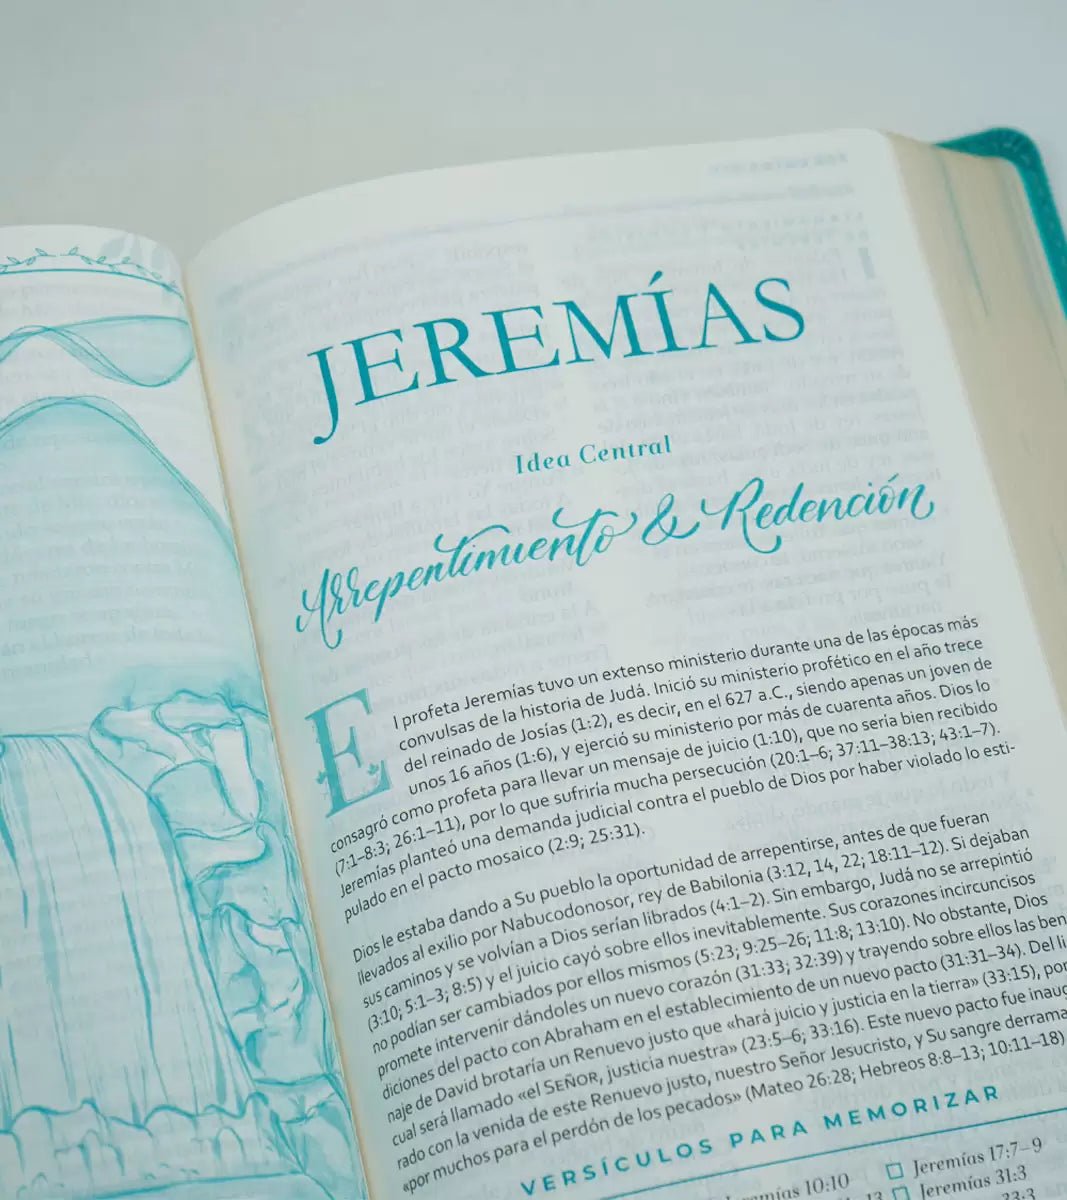 JEREMÍAS
Idea Central
Arrepentimiento & Redención
El profeta Jeremías tuvo un extenso ministerio durante una de las épocas más
convulsas de la historia de Judá. Inició su ministerio profético en el año trece
del reinado de Josías (1:2), es decir, en el 627 a.C., siendo apenas un joven de
unos 16 años (1:6), y ejerció su ministerio por más de cuarenta años. Dios lo
consagró como profeta para llevar un mensaje de juicio (1:10), que no sería bien recibido
(7:1–8:3; 26:1–11), por lo que sufriría mucha persecución (20:1–6; 37:11–38:13; 43:1–7).
Jeremías planteó una demanda judicial contra el pueblo de Dios por haber violado lo esti-
pulado en el pacto mosaico (2:9; 25:31).
Dios le estaba dando a Su pueblo la oportunidad de arrepentirse, antes de que fueran
llevados al exilio por Nabucodonosor, rey de Babilonia (3:12, 14, 22; 18:11–12). Si dejaban
sus caminos y se volvían a Dios serían librados (4:1–2). Sin embargo, Judá no se arrepintió
(3:10; 5:1–3; 8:5) y el juicio cayó sobre ellos inevitablemente. Sus corazones incircuncisos
no podían ser cambiados por ellos mismos (5:23; 9:25–26; 11:8; 13:10). No obstante, Dios
promete intervenir dándoles un nuevo corazón (31:33; 32:39) y trayendo sobre ellos las ben
diciones del pacto con Abraham en el establecimiento de un nuevo pacto (31:31–34). Del li
naje de David brotaría un Renuevo justo que «hará juicio y justicia en la tierra» (33:15), por
cual será llamado «el SEÑOR, justicia nuestra» (23:5–6; 33:16). Este nuevo pacto fue inaug
rado con la venida de este Renuevo justo, nuestro Señor Jesucristo, y Su sangre derrama
«por muchos para el perdón de los pecados» (Mateo 26:28; Hebreos 8:8–13; 10:11–18)
VERSÍCULOS PARA MEMORIZAR
emías 10:10
Jeremías 17:7–9
Jeremías 31:3